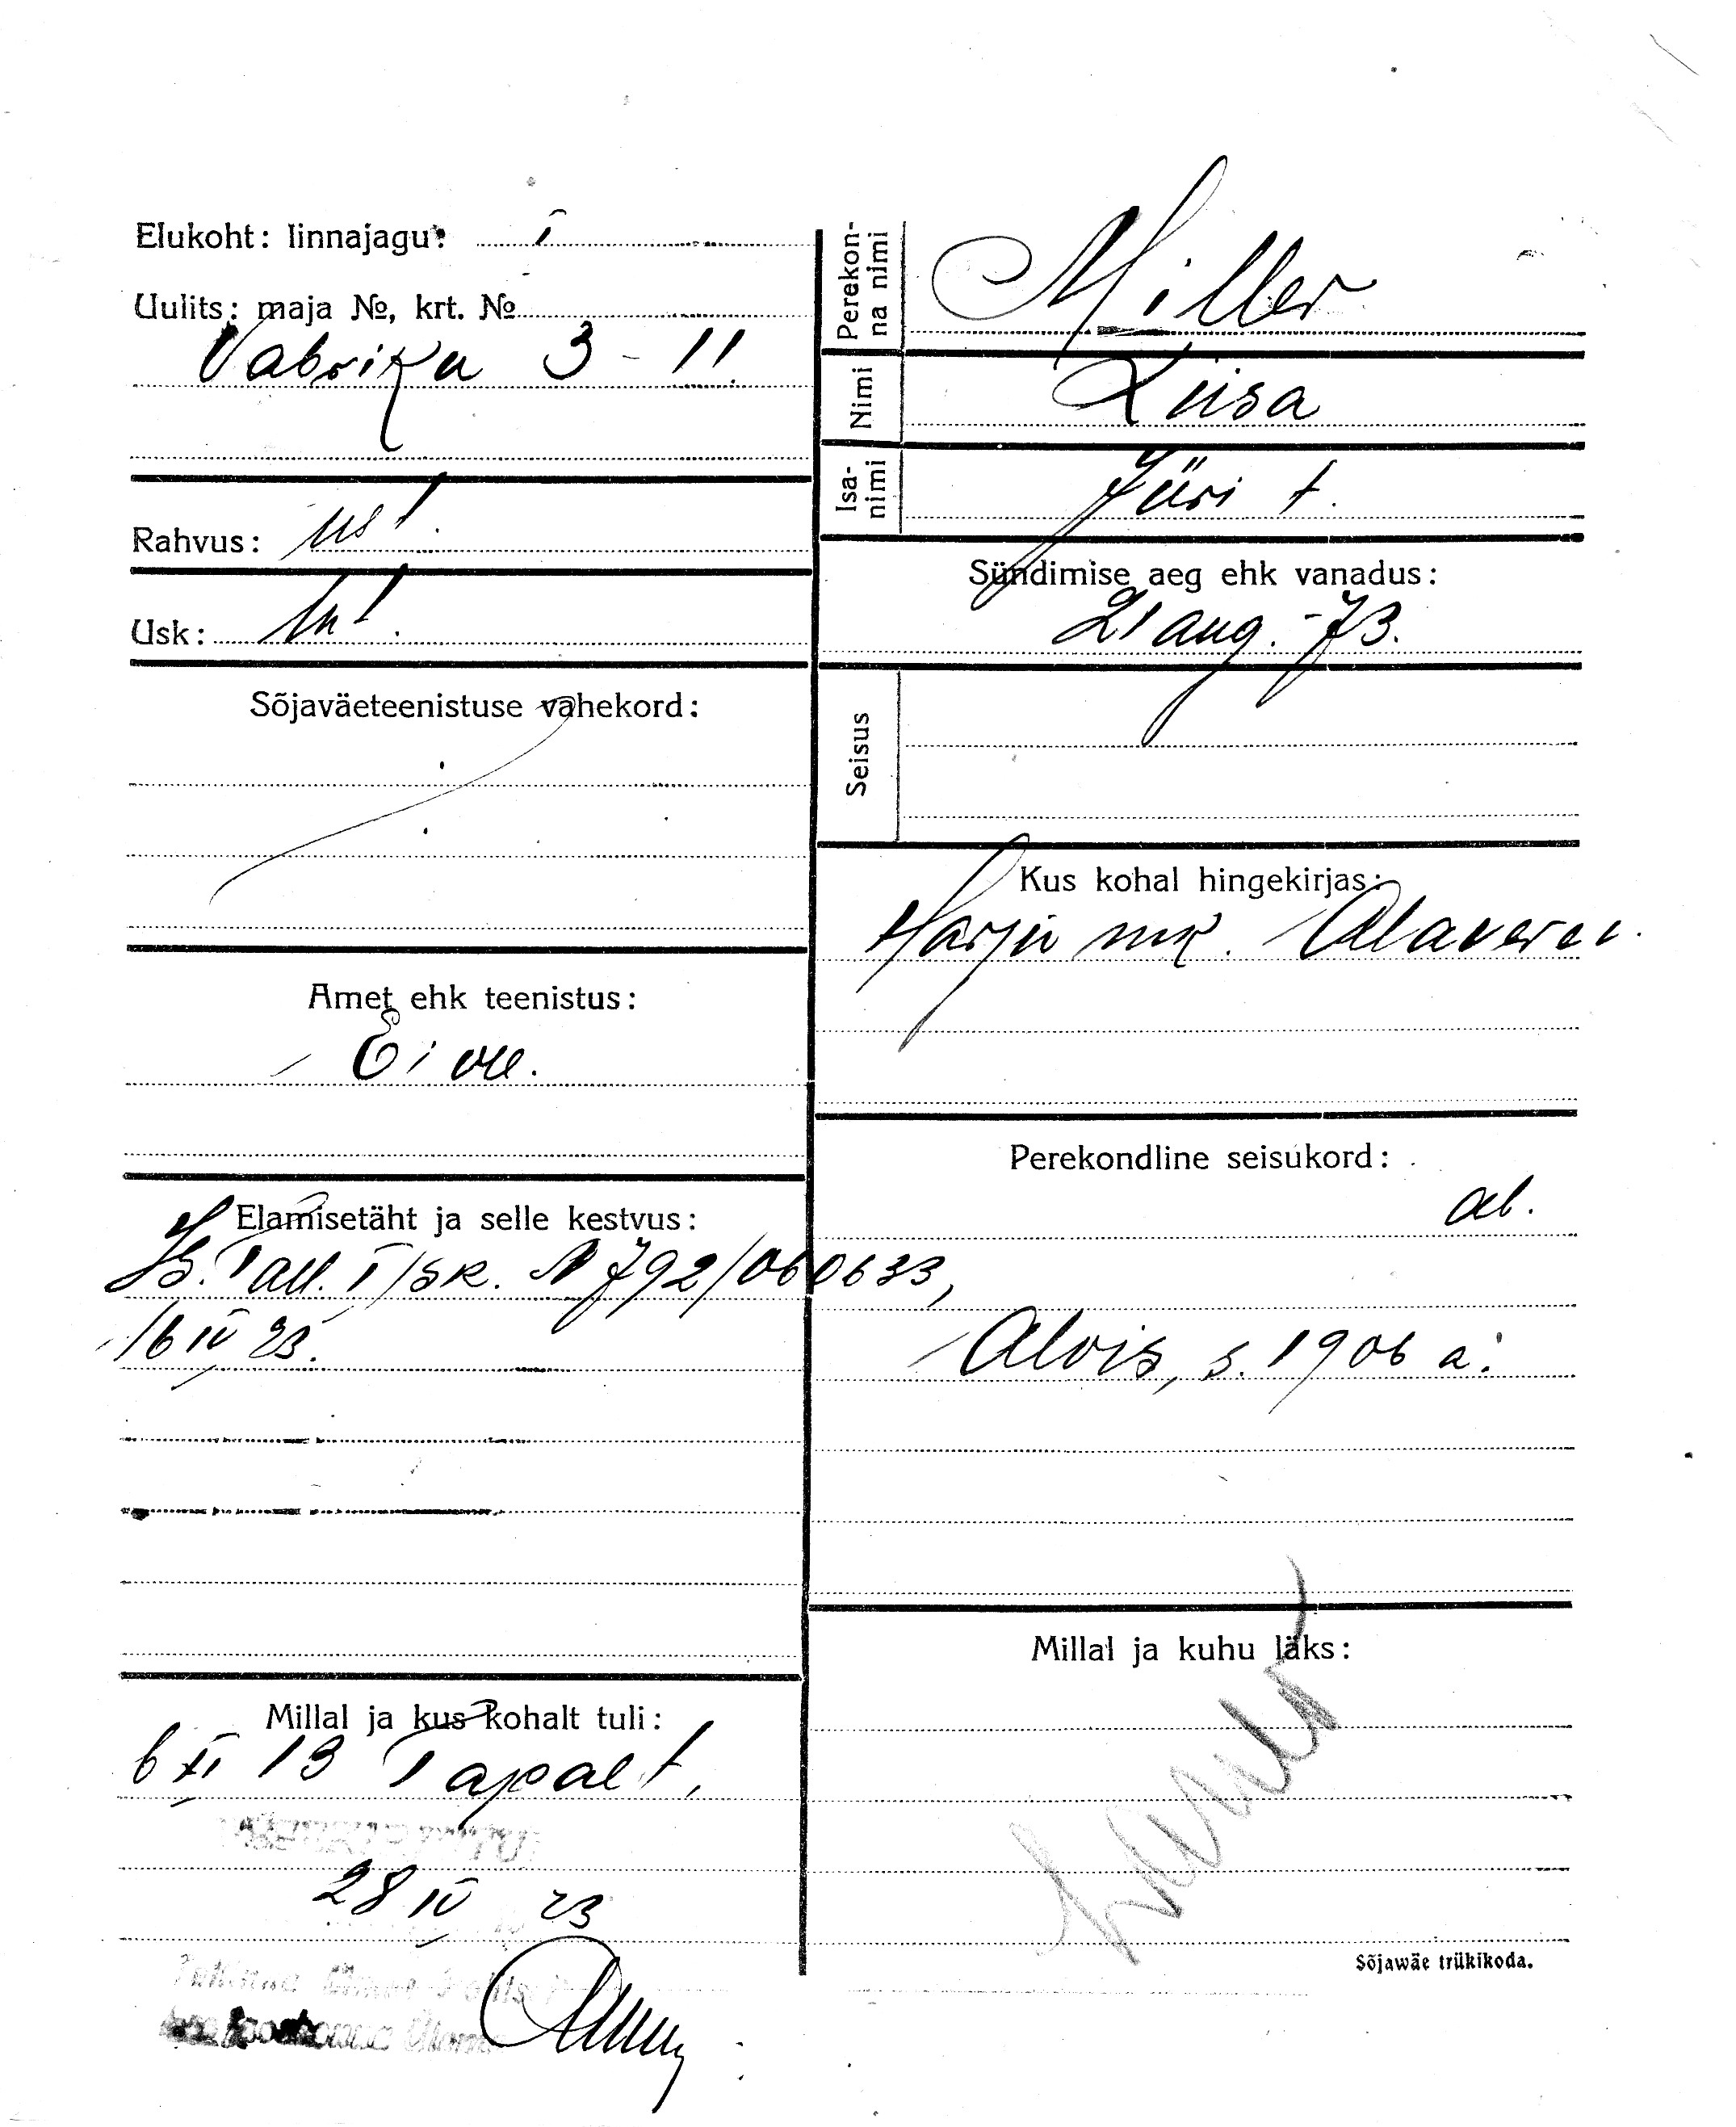 Elukoht: linnajagu: I
Uulits: maja №, krt. №
Vabriku 3 - 11
Rahvus: est.
Usk: lut.
Sõjaväeteenistuse vahekord:
Amet ehk teenistus:
Ei ole.
Elamisetäht ja selle kestvus:
Tall. I/sk. N 792/060633,
16 IV 23.
Millal ja kus kohalt tuli:
6 XI 13 Tapalt,
28 IV 23
Perekonna nimi
Miller
Nimi
Liisa
Isanimi
Jüri t.
Sündimise aeg ehk vanadus:
21 aug. -73.
Seisus
Kus kohal hingekirjas:
Harju mk. Alavere v.
Perekondline seisukord:
ab.
Alvis, s. 1906 a.
Millal ja kuhu läks:
Sõjawäe trükikoda.